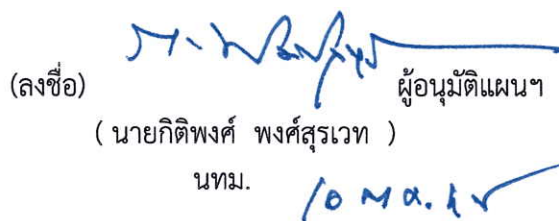 (ลงชื่อ) ผู้อนุมัติแผนฯ
( นายกิติพงศ์ พงศ์สุรเวท )
นทม.